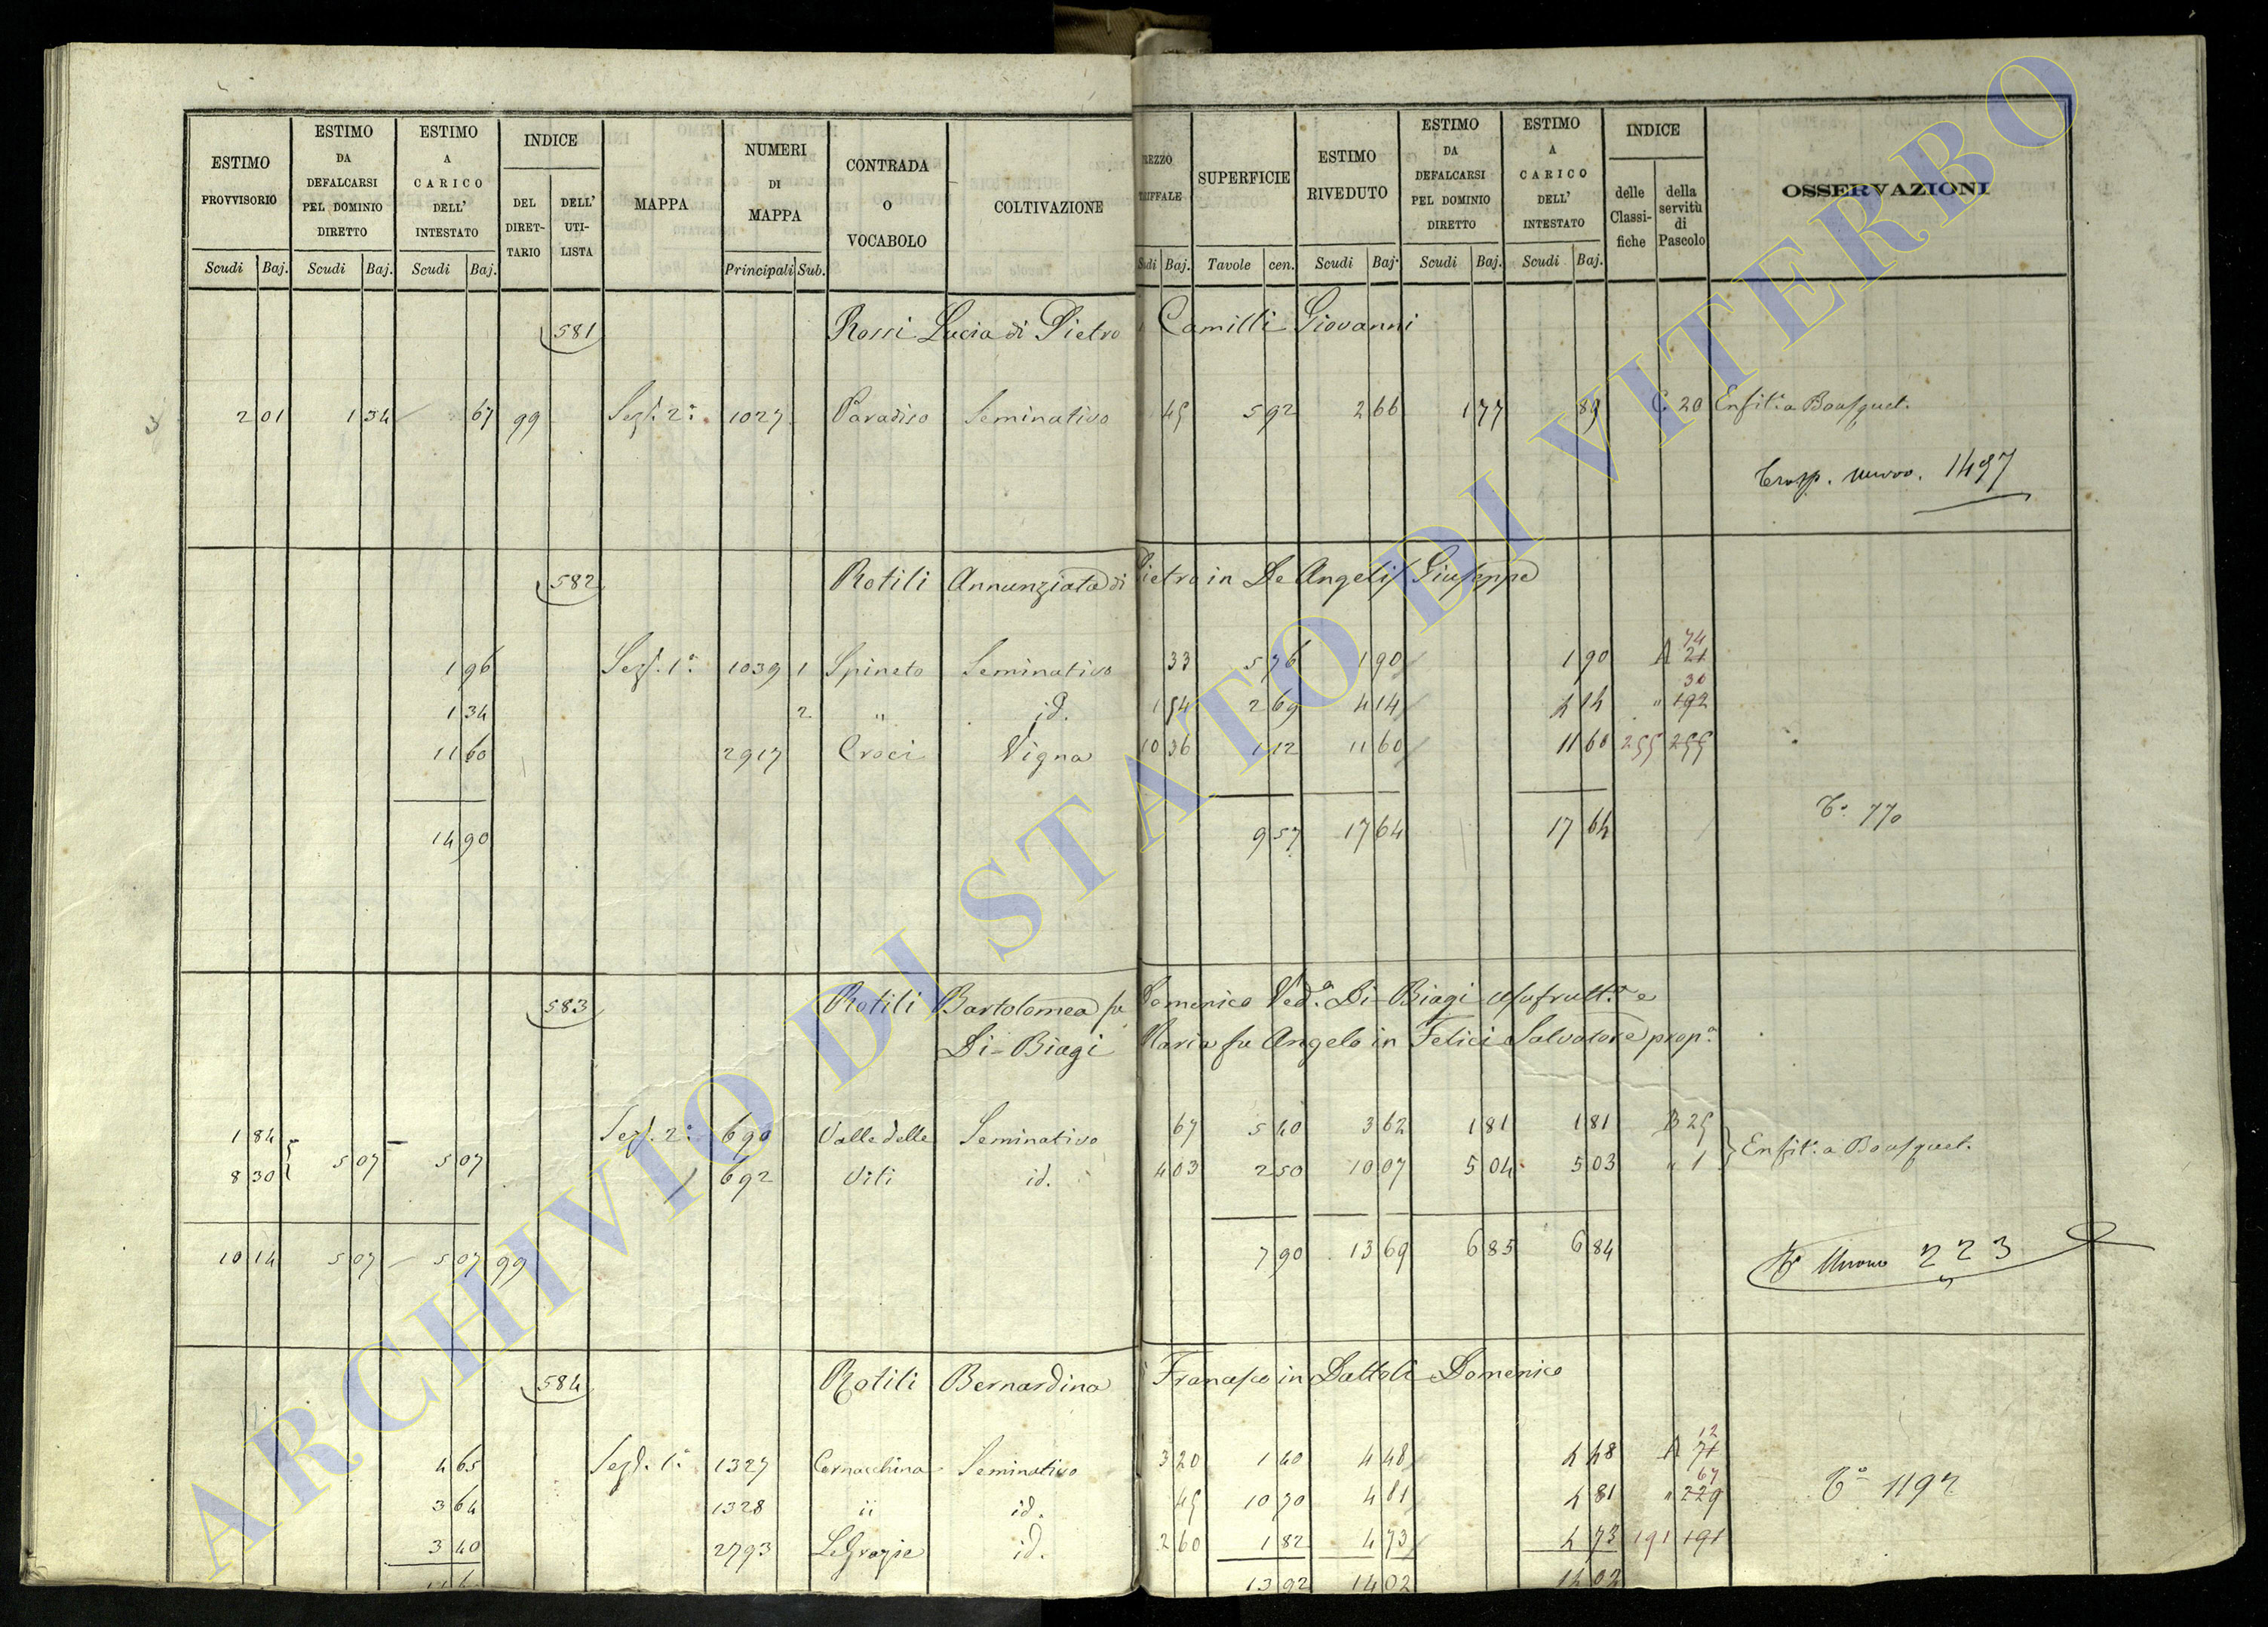 ESTIMO PROVVISORIO | ESTIMO DA DEFALCARSI PEL DOMINIO DIRETTO | ESTIMO A CARICO DELL' INTESTATO | INDICE | MAPPA | NUMERI DI MAPPA | CONTRADA O VOCABOLO | COLTIVAZIONE | SUPERFICIE | ESTIMO RIVEDUTO | ESTIMO DA DEFALCARSI PEL DOMINIO DIRETTO | ESTIMO A CARICO DELL' INTESTATO | INDICE | OSSERVAZIONI
DEL DIRETTARIO | DELL' UTILISTA | delle Classifiche | della servitù di Pascolo
Scudi | Baj. | Scudi | Baj. | Scudi | Baj. | Principali | Sub. | Baj. | Tavole | cen. | Scudi | Baj. | Scudi | Baj. | Scudi | Baj.
581 Rossi Lucia di Pietro Camilli Giovanni
2 01 | 1 34 | 67 | 99 | Sez. 2a | 1027 | Paradiso | Seminativo | 45 | 5 92 | 2 66 | 1 77 | 89 | C 20 | Enfit. a Bousquet.
Trasp. nuovo. 1497
582 Rotili Annunziata di Pietro in De Angelis Giuseppe
1 96 | Sez. 1a | 1039 | 1 | Spineto | Seminativo | 33 | 5 76 | 1 90 | 1 90 | A 21 74
1 34 | 2 | " | id. | 1 54 | 2 69 | 4 14 | 4 14 | " 192 30
11 60 | 2917 | Croci | Vigna | 10 36 | 1 12 | 11 60 | 11 60 | 255 | 255
14 90 | 9 57 | 17 64 | 17 64 | To 770
583 Rotili Bartolomea fu Domenico Ved.a Di-Biagi usufrutt.a e
Di-Biagi Maria fu Angelo in Felici Salvatore prop.a
1 84 | 5 07 | 5 07 | Sez. 2a | 690 | Valle delle | Seminativo | 67 | 5 40 | 3 62 | 1 81 | 1 81 | B 25 | Enfit. a Bousquet.
8 30 | 692 | Viti | id. | 4 03 | 2 50 | 10 07 | 5 04 | 5 03 | " 1
10 14 | 5 07 | 5 07 | 99 | 7 90 | 13 69 | 6 85 | 6 84 | To Nuovo 223
584 Rotili Bernardina di Francesco in Dattoli Domenico
4 65 | Sez. 1a | 1327 | Cornacchina | Seminativo | 3 20 | 1 40 | 4 48 | 4 48 | A 71 12
3 64 | 1328 | " | id. | 45 | 10 70 | 4 81 | 4 81 | " 229 67 | To 1192
3 40 | 2793 | Le Grazie | id. | 2 60 | 1 82 | 4 73 | 4 73 | 191 | 191
13 92 | 14 02 | 14 02
ARCHIVIO DI STATO DI VITERBO